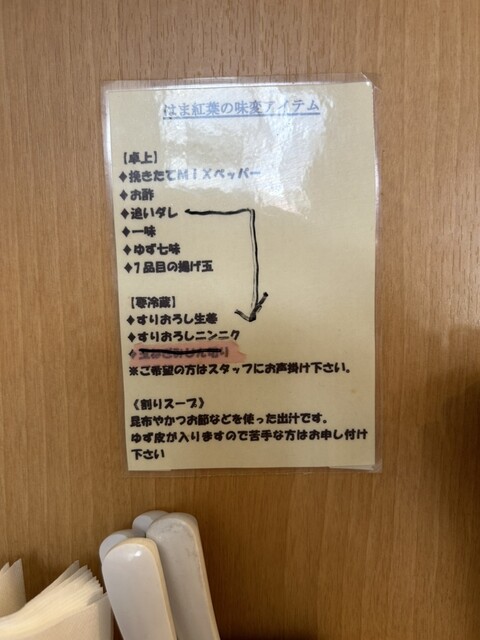 はま紅葉の味変アイテム
【卓上】
♦挽きたてMIXペッパー
♦お酢
♦追いダレ
♦一味
♦ゆず七味
♦7品目の揚げ玉
【要冷蔵】
♦すりおろし生姜
♦すりおろしニンニク
※ご希望の方はスタッフにお声掛け下さい。
《割りスープ》
昆布やかつお節などを使った出汁です。
ゆず皮が入りますので苦手な方はお申し付け
下さい